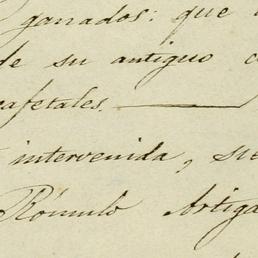 ganados: que
de su antiguo
cafetales.
intervenida, su
Rómulo Artiga